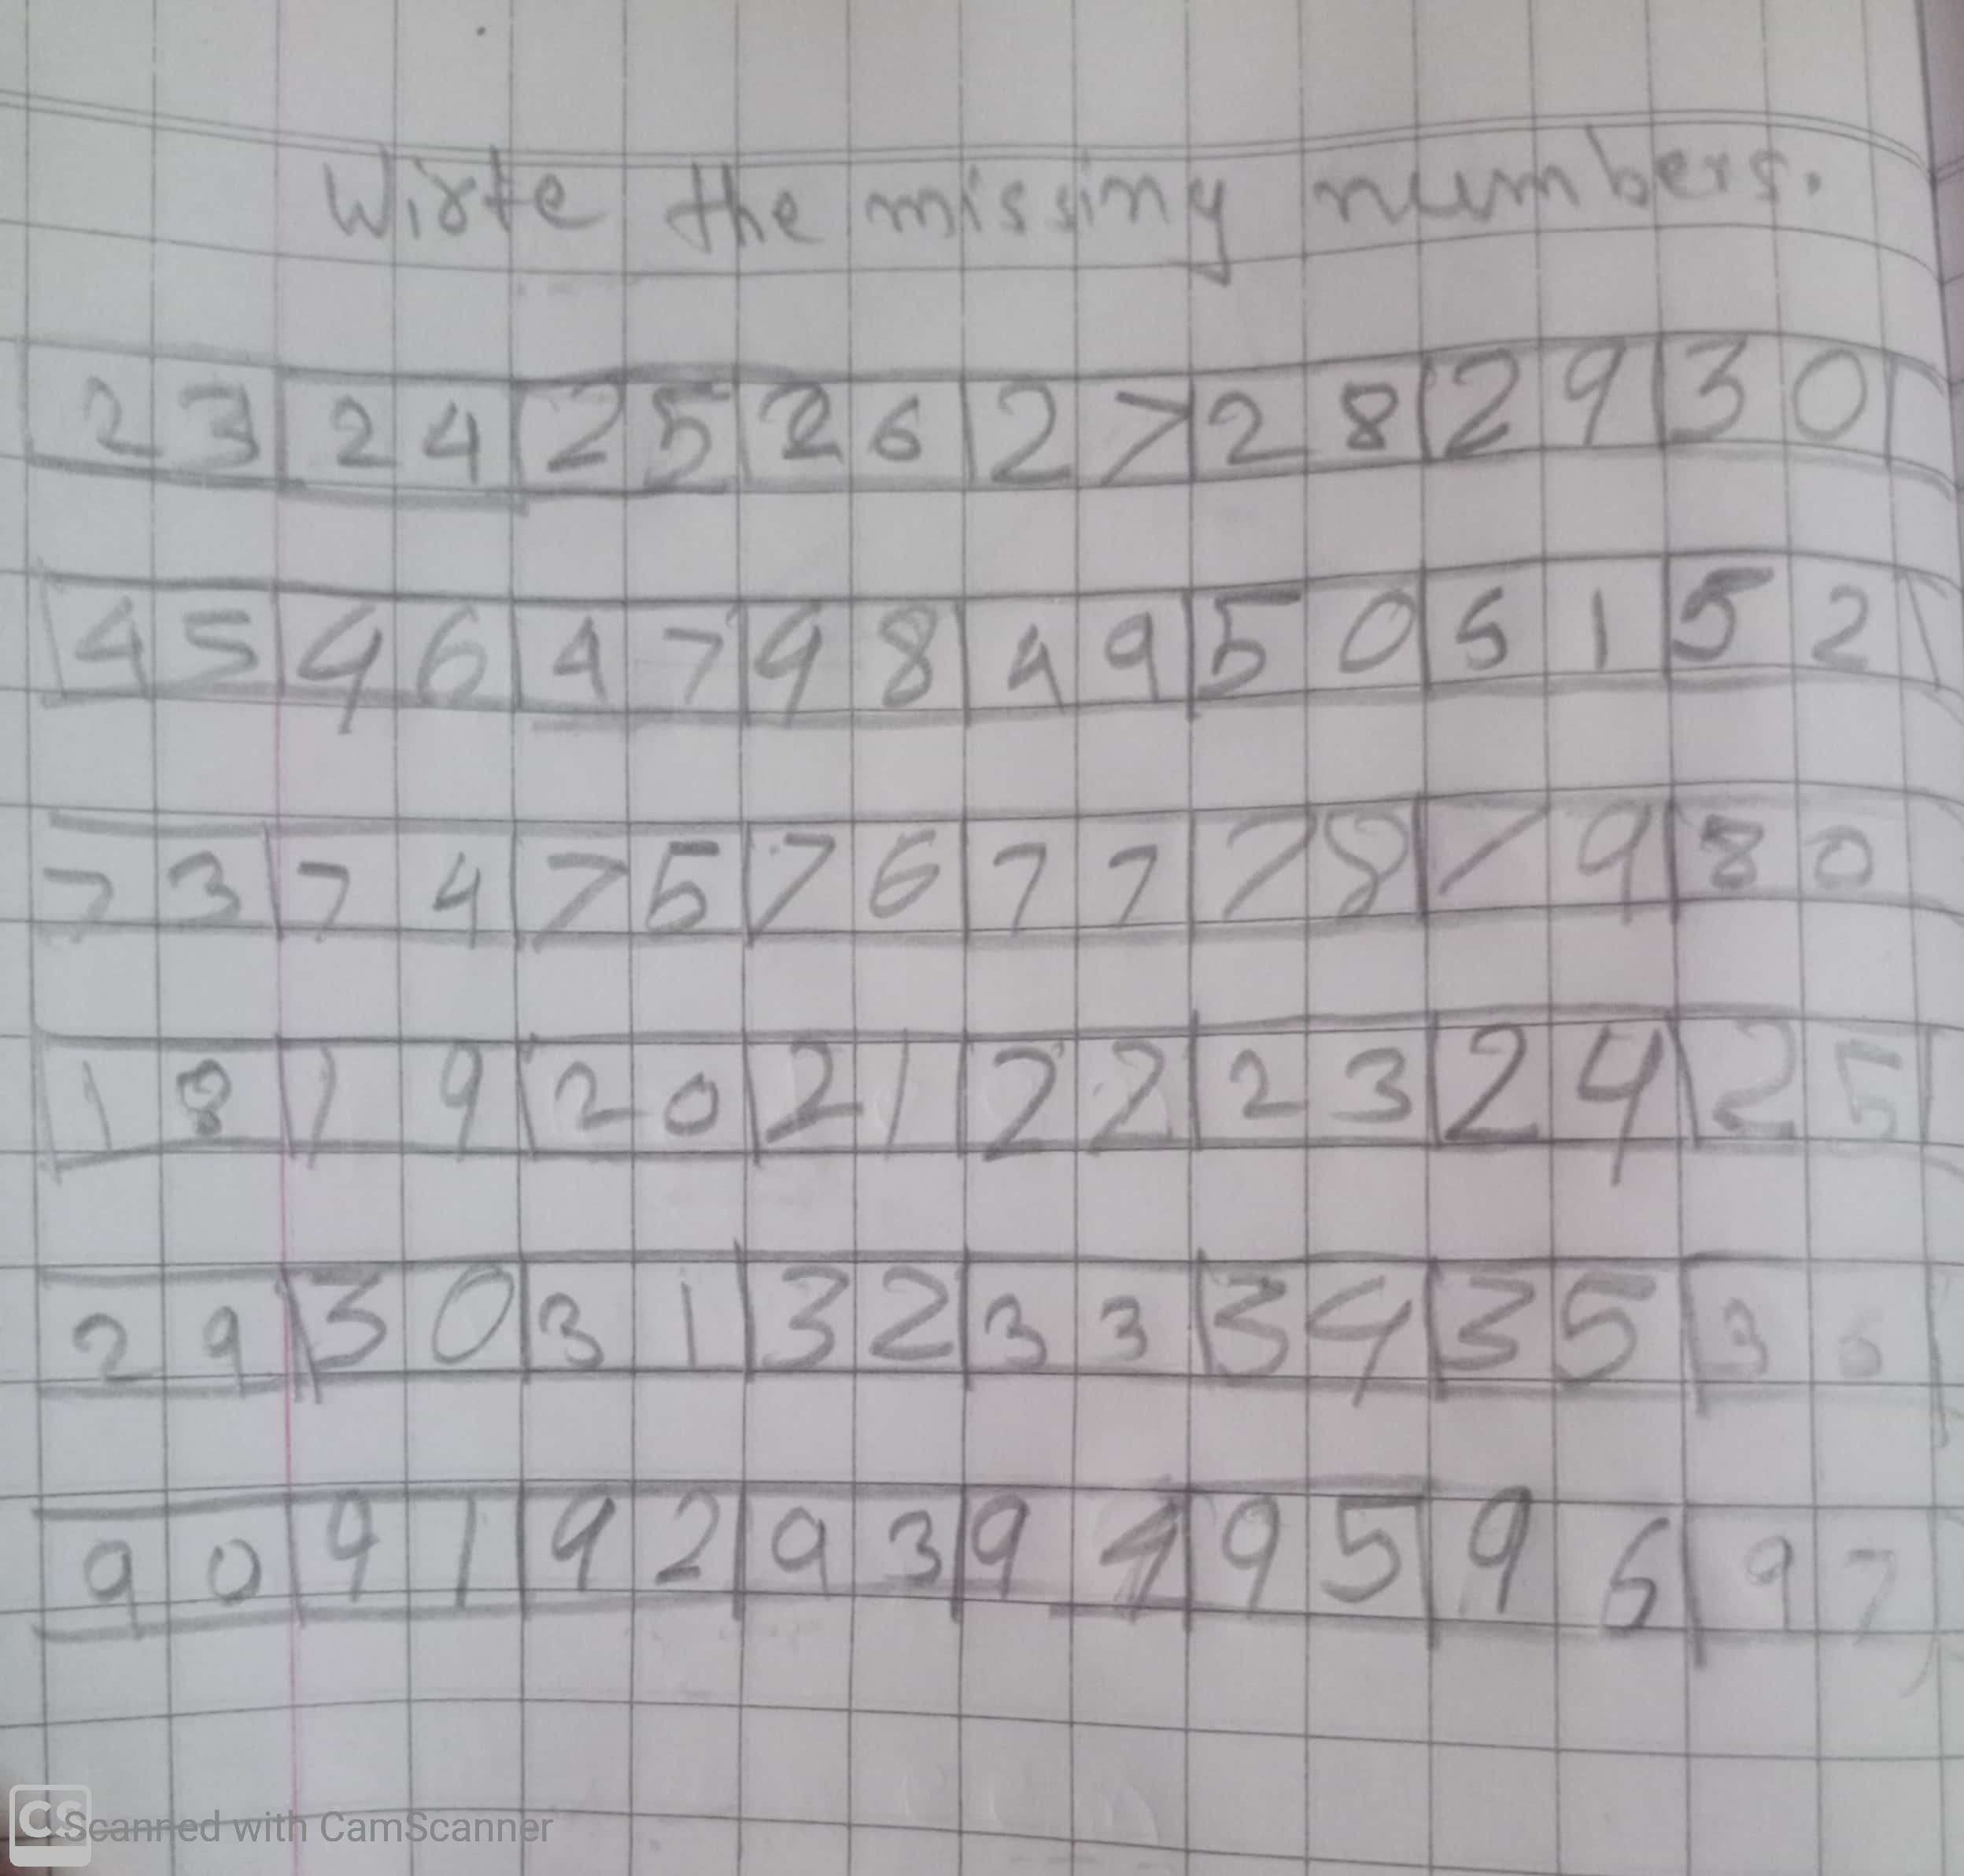 Wirte the missing numbers.
23 24 25 26 27 28 29 30
45 46 47 48 49 50 51 52
73 74 75 76 77 78 79 80
18 19 20 21 22 23 24 25
29 30 31 32 33 34 35 36
90 91 92 93 94 95 96 97
CS Scanned with CamScanner